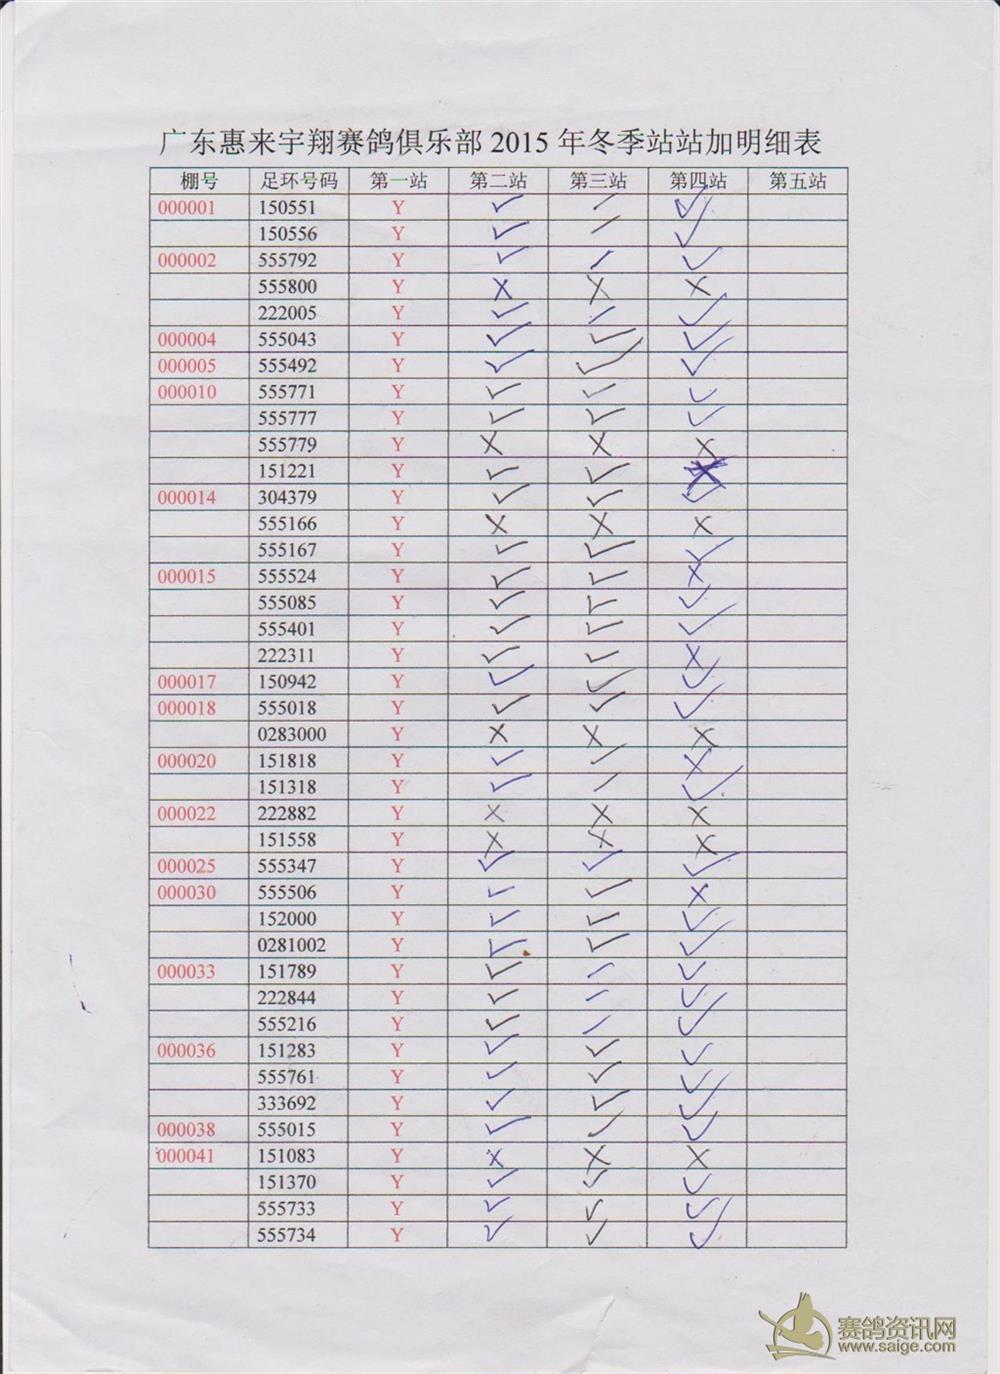 广东惠来宇翔赛鸽俱乐部 2015 年冬季站站加明细表
棚号 足环号码 第一站 第二站 第三站 第四站 第五站
000001 150551 Y ✓ ✓ ✓
150556 Y ✓ ✓ ✓
000002 555792 Y ✓ ✓ ✓
555800 Y X X X
222005 Y ✓ ✓ ✓
000004 555043 Y ✓ ✓ ✓
000005 555492 Y ✓ ✓ ✓
000010 555771 Y ✓ ✓ ✓
555777 Y ✓ ✓ ✓
555779 Y X X X
151221 Y ✓ ✓ X
000014 304379 Y ✓ ✓ ✓
555166 Y X X X
555167 Y ✓ ✓ ✓
000015 555524 Y ✓ ✓ X
555085 Y ✓ ✓ ✓
555401 Y ✓ ✓ ✓
222311 Y ✓ ✓ X
000017 150942 Y ✓ ✓ ✓
000018 555018 Y ✓ ✓ ✓
0283000 Y X X X
000020 151818 Y ✓ ✓ X
151318 Y ✓ ✓ ✓
000022 222882 Y X X X
151558 Y X X X
000025 555347 Y ✓ ✓ ✓
000030 555506 Y ✓ ✓ X
152000 Y ✓ ✓ ✓
0281002 Y ✓ ✓ ✓
000033 151789 Y ✓ ✓ ✓
222844 Y ✓ ✓ ✓
555216 Y ✓ ✓ ✓
000036 151283 Y ✓ ✓ ✓
555761 Y ✓ ✓ ✓
333692 Y ✓ ✓ ✓
000038 555015 Y ✓ ✓ ✓
000041 151083 Y X X X
151370 Y ✓ ✓ ✓
555733 Y ✓ ✓ ✓
555734 Y ✓ ✓ ✓
赛鸽资讯网
www.saige.com